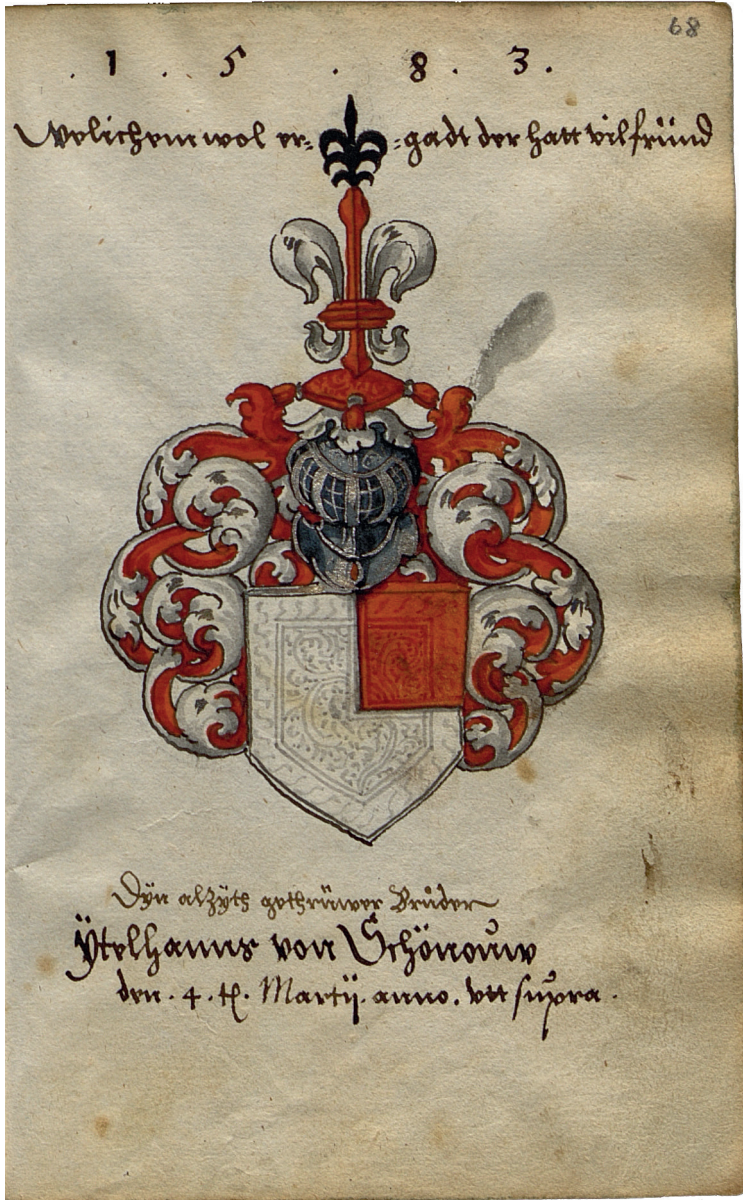 68
. 1 . 5 . 8 . 3 .
Welichem wol er= =gadt der hatt vil fründ
Dyn alzÿth gethrüwer Brůder
Ÿtelhanns von Schönouw
den . 4 . tt. Martij . anno . vtt supra .